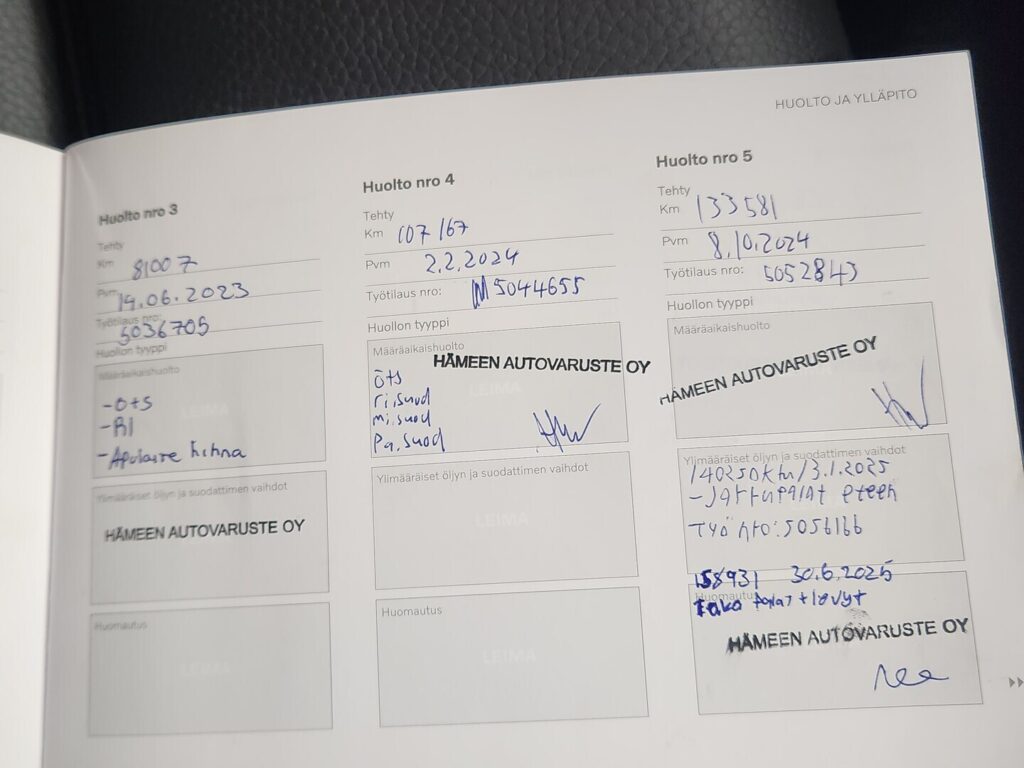 HUOLTO JA YLLÄPITO
Huolto nro 3
Tehty
Km 81007
Pvm 19.06.2023
Työtilaus nro:
5036705
Huollon tyyppi
Määräaikaishuolto
-öts
-RI
-Apulaite hihna
LEIMA
Ylimääräiset öljyn ja suodattimen vaihdot
HÄMEEN AUTOVARUSTE OY
Huomautus
LEIMA
Huolto nro 4
Tehty
Km 107 167
Pvm 2.2.2024
Työtilaus nro: 5044655
Huollon tyyppi
Määräaikaishuolto
HÄMEEN AUTOVARUSTE OY
LEIMA
öts
ri.suod
mi.suod
Pa.suod
Ylimääräiset öljyn ja suodattimen vaihdot
LEIMA
Huomautus
LEIMA
Huolto nro 5
Tehty
Km 133581
Pvm 8.10.2024
Työtilaus nro: 5052843
Huollon tyyppi
Määräaikaishuolto
HÄMEEN AUTOVARUSTE OY
Ylimääräiset öljyn ja suodattimen vaihdot
140250km/3.1.2025
-Jarrupalat eteen
TYÖ nro: 5056166
158931 30.6.2025
Huomautus
Taka palat + levyt
HÄMEEN AUTOVARUSTE OY